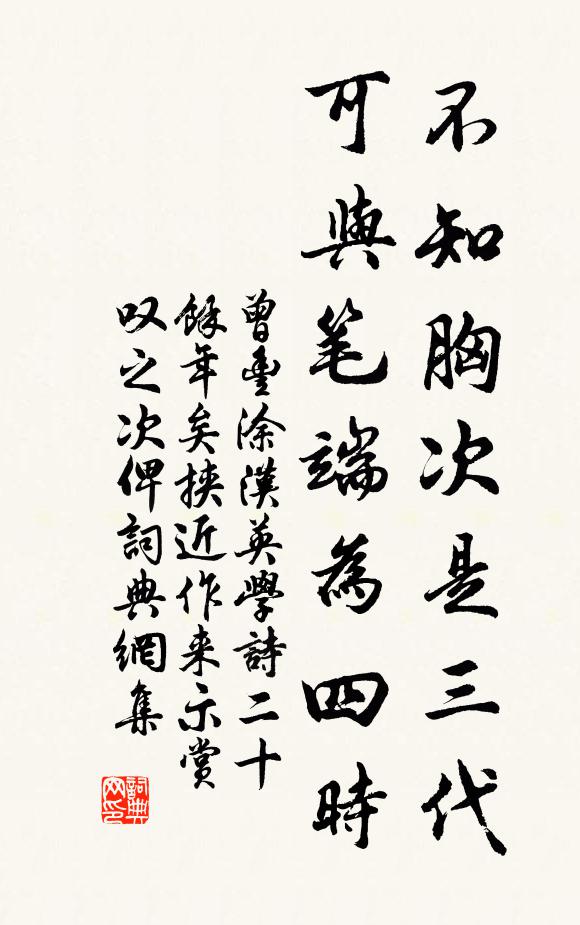 不知胸次是三代
可與笔端為四時
曾豐涂漢英學詩二十
餘年矣挟近作来示賞
叹之次俾詞典網集
詞典网印